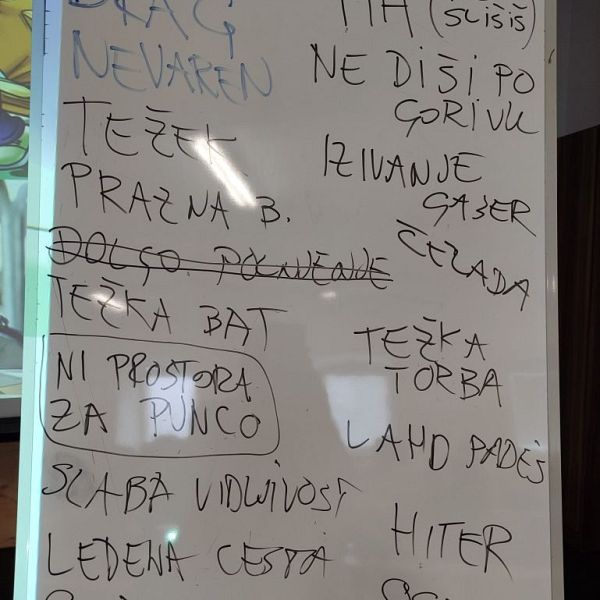 DRAG
NEVAREN
TEŽEK
PRAZNA B.
DOLGO POLNJENJE
TEŽKA BAT
NI PROSTORA
ZA PUNCO
SLABA VIDLJIVOST
LEDENA CESTA
(SLIŠIŠ)
NE DIŠI PO
GORIVU
IZIVANJE
GASER
ČELADA
TEŽKA
TORBA
LAHD PADEŠ
HITER